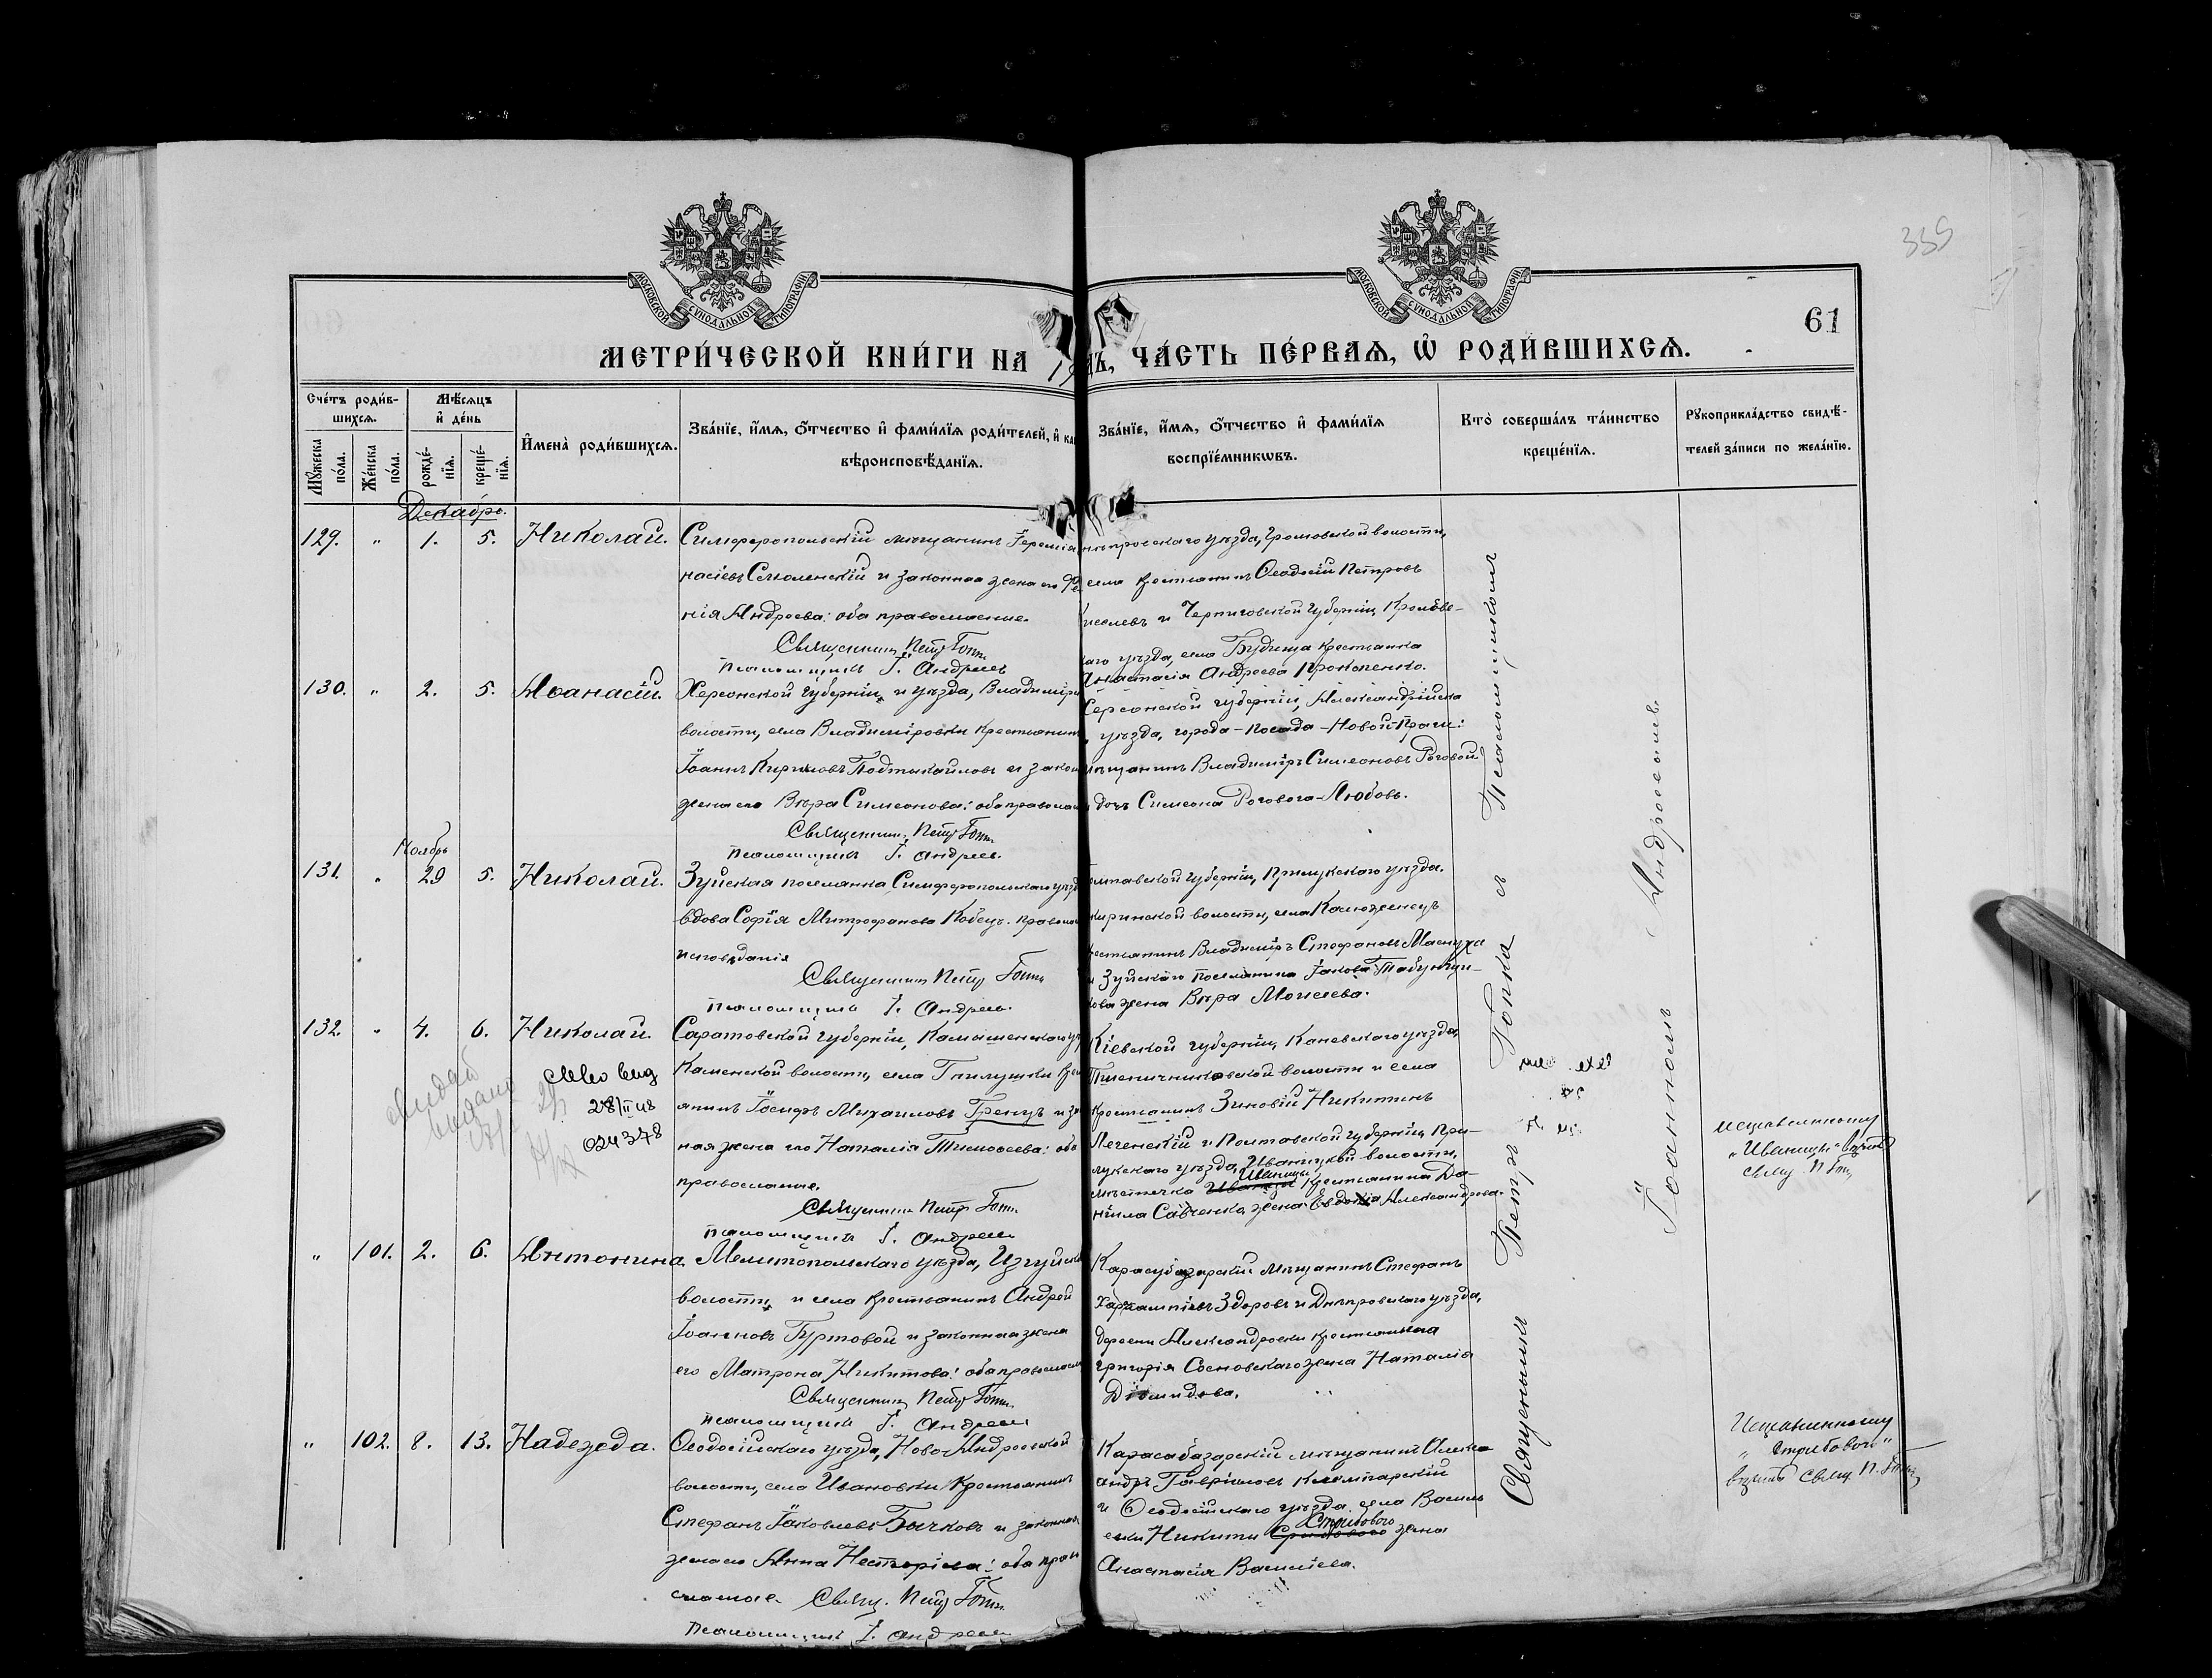 335
61
МОСКОВСКОЙ СѴНОДАЛЬНОЙ ТИПОГРАФІИ
МОСКОВСКОЙ СѴНОДАЛЬНОЙ ТИПОГРАФІИ
МЕТРИ́ЧЕСКОЙ КНИ́ГИ НА 19 ДЪ, ЧА́СТЬ ПЕ́РВАѦ, Ѽ РОДИ́ВШИХСѦ.
Сче́тъ роди́в-
шихсѧ.
Мꙋжеска по́ла.
Же́нска по́ла.
Мѣ́сѧцъ
и҆ де́нь
рожде́-
нїѧ.
креще́-
нїѧ.
И҆мена̀ роди́вшихсѧ.
Зва́нїе, и҆́мѧ, ѻ҆́тчество и҆ фами́лїѧ роди́телей, и҆ ка
вѣроисповѣ́данїѧ.
Зва́нїе, и҆́мѧ, ѻ҆́тчество и҆ фами́лїѧ
воспрїе́мникѡвъ.
Кто̀ соверша́лъ та́инство
креще́нїѧ.
Рꙋкоприкла́дство свидѣ́-
телей за́писи по жела́нїю.
Декабрь.
129. " 1. 5. Николай.
Симферопольскій мѣщанинъ Іеремія
насіевъ Смоленскій и законная жена его
нія Андреева: оба православные.
Священникъ Петръ
Псаломщикъ І. Андреев
нѣпровскаго уѣзда, Громовской волости,
села крестьянинъ Ѳеодосій Петровъ
иселевъ и Черниговской губерніи, Кролеве-
каго уѣзда, села Будища крестьянка
Анастасія Андреева Прокопенко.
130. " 2. 5. Аѳанасій.
Херсонской губерніи и уѣзда, Владимиро
волости, села Владиміровки крестьянинъ
Іоаннъ Кириловъ и закон
жена его Вѣра Симеонова: оба православ
Священникъ Петръ
Псаломщикъ І. Андреев.
Херсонской губерніи, Александрійска
уѣзда, города-посада-Новой-Праги:
мѣщанинъ Владиміръ Симеоновъ Роговой
и дочь Симеона Рогового-Любовь.
Ноябрь
131. " 29 5. Николай.
Зуйская поселянка Симферопольскаго уѣзд
вдова Софія Митрофанова Кобецъ. правосла
исповѣданія
Священникъ Петръ
Псаломщикъ І. Андреев.
олтавской губерніи, Прилукскаго уѣзда.
волости, села
рестьянинъ Владиміръ Стефановъ
и Зуйскаго поселянина Іакова
кова жена Вѣра Моисеева.
132. " 4. 6. Николай.
28/II 48
024378
Саратовской губерніи, Камышенскаго уѣ
Каменской волости, села Гнилушки крес
янинъ Іосифъ Михаиловъ Гренцъ и за
ная жена его Наталія Тимоѳеева: оба
православные.
Священникъ Петръ
Псаломщикъ І. Андреев
Кіевской губерніи, Каневскаго уѣзда,
Пшеничниковской волости и села
крестьянинъ Зиновій Никитинъ
и Полтавской губерніи, При-
лукскаго уѣзда, Иваницкой волости,
Иваницы
мѣстечка крестьянина Да-
ніила Савченка, жена Евдокія Александрова.
Исправленному
"Иваницы" вѣрить
свящ. П.
" 101. 2. 6. Антонина.
Мелитопольскаго уѣзда,
волости и села крестьянинъ Андрей
Іоанновъ Гуртовой и законная жена
его Матрона Никитова: оба православн
Священникъ Петръ
Псаломщикъ І. Андреев
Карасубазарскій мѣщанинъ Стефанъ
Харлампіевъ Здоровъ и Днѣпровскаго уѣзда,
деревни Александровки крестьянина
Григорія Сосновскаго жена Наталія
Діомидова.
" 102. 8. 13. Надежда.
Ѳеодосійскаго уѣзда, Ново-Андреевской
волости, села Ивановки крестьянинъ
Стефанъ Іаковлевъ Бычковъ и законная
жена его Анна Несторіева: оба прав
славные. Свящ. Петръ
Псаломщикъ І. Андреев
Карасубазарскій мѣщанинъ Алекс
андръ Гавріиловъ
и Ѳеодосійскаго уѣзда села Василь
Стригового
евки Никиты жена
Анастасія Васильева.
Исправленному
вѣрить Свящ. П.
Священникъ Петръ съ Псаломщикомъ
Іоанномъ Андреевымъ.